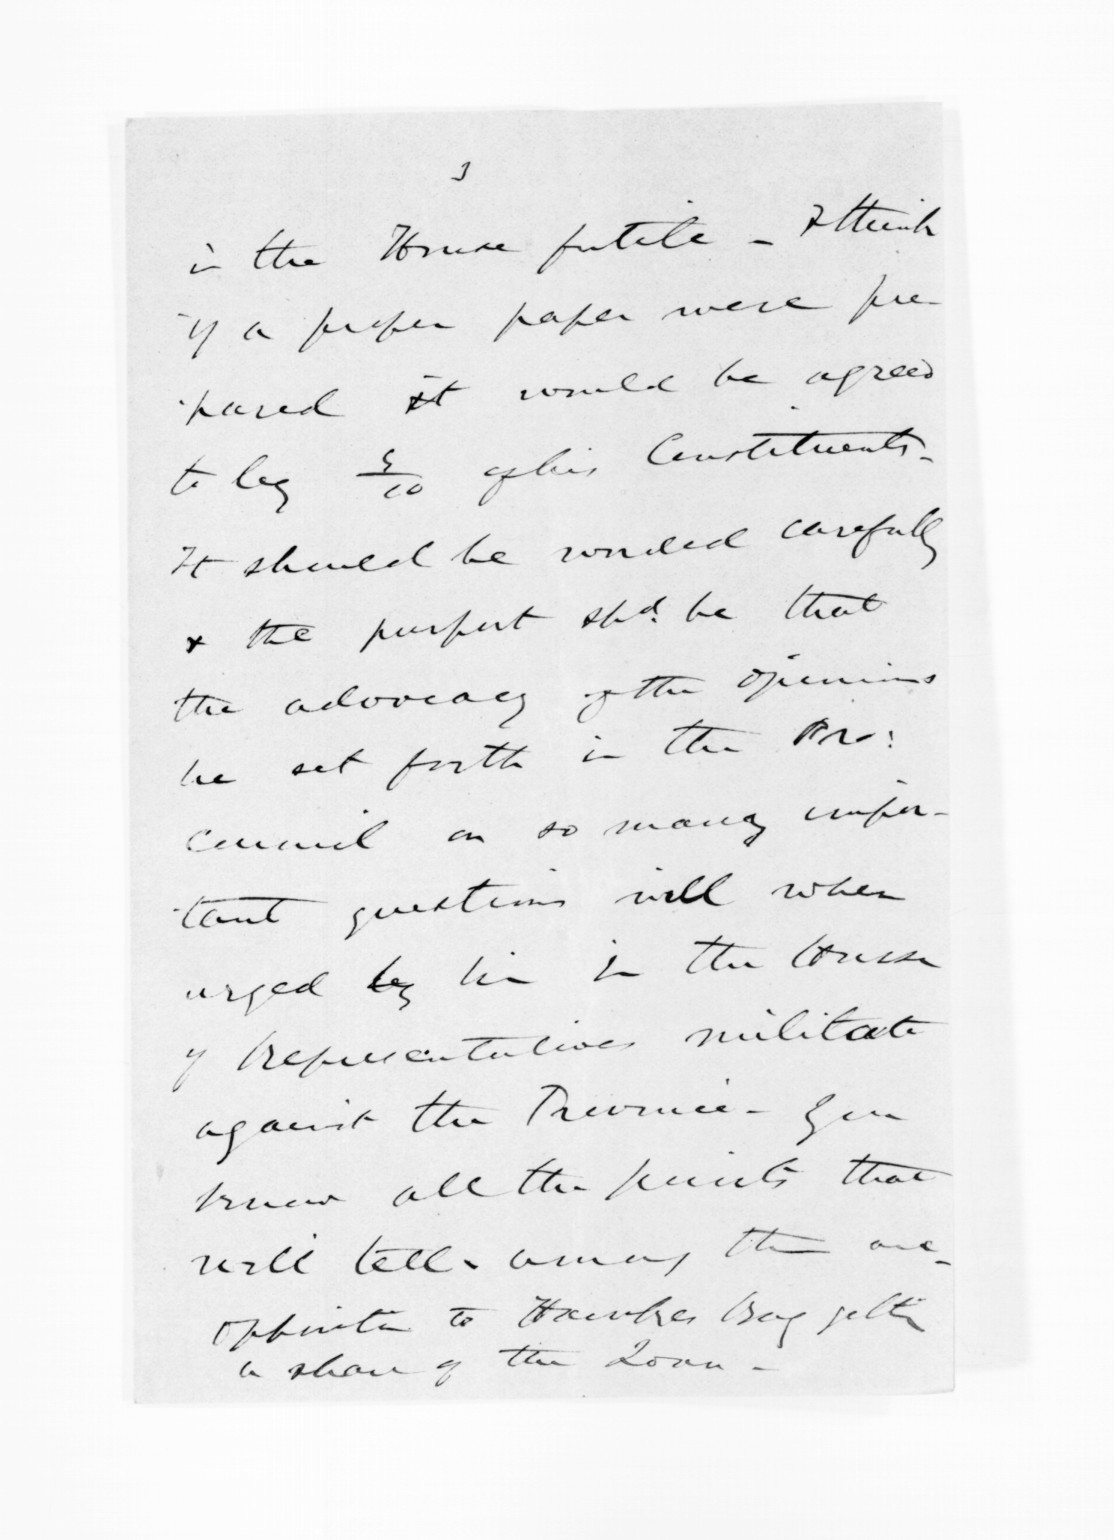 3
in the House futile - I think
if a proper paper were pre-
pared it would be agreed
to by 9/10 of his Constituents -
It should be worded carefully
& the purport shd. be that
the advocacy of the opinions
he set forth in the Pro:
Council on so many impor-
tant questions will when
urged by him in the House
of Representatives militate
against the Province - You
know all the points that
will tell - among them
opposition to Hawkes Bay getting
a share of the Loan -